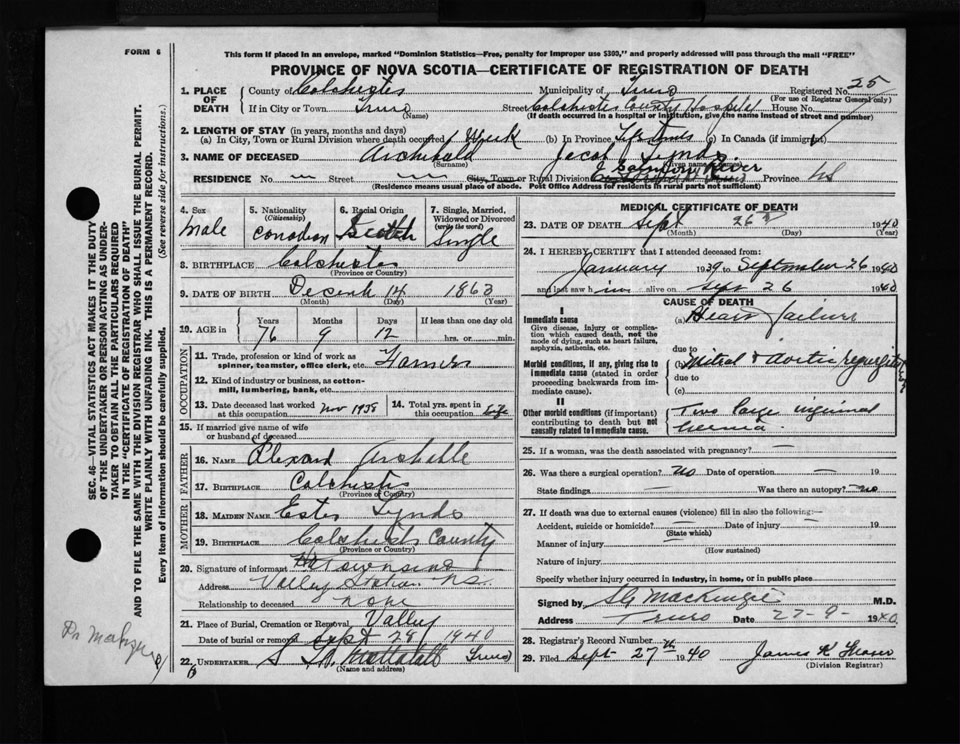 FORM 6
This form if placed in an envelope, marked "Dominion Statistics—Free, penalty for improper use $300," and properly addressed will pass through the mail "FREE"
PROVINCE OF NOVA SCOTIA—CERTIFICATE OF REGISTRATION OF DEATH
SEC. 46—VITAL STATISTICS ACT MAKES IT THE DUTY
OF THE UNDERTAKER OR PERSON ACTING AS UNDER-
TAKER TO OBTAIN ALL THE PARTICULARS REQUIRED
IN THE "CERTIFICATE OF REGISTRATION OF DEATH"
AND TO FILE THE SAME WITH THE DIVISION REGISTRAR WHO SHALL ISSUE THE BURIAL PERMIT.
WRITE PLAINLY WITH UNFADING INK. THIS IS A PERMANENT RECORD.
Every item of information should be carefully supplied. (See reverse side for instructions.)
1. PLACE OF DEATH
County of Colchester Municipality of Truro Registered No. 25
(For use of Registrar General only)
If in City or Town Truro Street Colchester County Hospital House No.
(Name) (If death occurred in a hospital or institution, give the name instead of street and number)
2. LENGTH OF STAY (in years, months and days)
(a) In City, Town or Rural Division where death occurred 1 Week (b) In Province Life (c) In Canada (if immigrant)
3. NAME OF DECEASED Archibald Jacob Lynds
(Surname) (Given names)
RESIDENCE No. Street City, Town or Rural Division River Province NS
(Residence means usual place of abode. Post Office Address for residents in rural parts not sufficient)
4. Sex
Male
5. Nationality
(Citizenship)
Canadian
6. Racial Origin
Scotch
7. Single, Married, Widowed or Divorced
(write the word)
Single
8. BIRTHPLACE Colchester
(Province or Country)
9. DATE OF BIRTH Decemb 14 1863
(Month) (Day) (Year)
10. AGE in
Years Months Days If less than one day old
76 9 12 hrs. or min.
OCCUPATION
11. Trade, profession or kind of work as
spinner, teamster, office clerk, etc. Farmer
12. Kind of industry or business, as cotton-
mill, lumbering, bank, etc.
13. Date deceased last worked at this occupation Nov 1938
14. Total yrs. spent in this occupation life
15. If married give name of wife
or husband of deceased
FATHER
16. NAME Archibald
17. BIRTHPLACE Colchester
(Province or Country)
MOTHER
18. MAIDEN NAME Ester Lynds
19. BIRTHPLACE Colchester County
(Province or Country)
20. Signature of informant Townsend
Address Valley Station N.S.
Relationship to deceased none
21. Place of Burial, Cremation or Removal Valley
Date of burial or removal Sept 28 1940
22. UNDERTAKER Mattatall Truro
(Name and address)
MEDICAL CERTIFICATE OF DEATH
23. DATE OF DEATH Sept 26 1940
(Month) (Day) (Year)
24. I HEREBY CERTIFY that I attended deceased from:
January 1939 to September 26 1940
and last saw him alive on Sept 26 1940
CAUSE OF DEATH
I
Immediate cause (a) Heart failure
Give disease, injury or complica-
tion which caused death, not the
mode of dying, such as heart failure,
asphyxia, asthenia, etc.
due to
Morbid conditions, if any, giving rise to
immediate cause (stated in order
proceeding backwards from im-
mediate cause).
(b) Mitral & Aortic
due to
(c)
II
Other morbid conditions (if important)
contributing to death but not
causally related to immediate cause.
Two large inguinal
hernia.
25. If a woman, was the death associated with pregnancy?
26. Was there a surgical operation? No Date of operation — 19
State findings — Was there an autopsy? no
27. If death was due to external causes (violence) fill in also the following:—
Accident, suicide or homicide? — Date of injury — 19
(State which)
Manner of injury
(How sustained)
Nature of injury
Specify whether injury occurred in industry, in home, or in public place
Signed by MacKenzie M.D.
Address Truro Date 27-9- 1940
28. Registrar's Record Number
29. Filed Sept 27th 1940 James K Fraser
(Division Registrar)